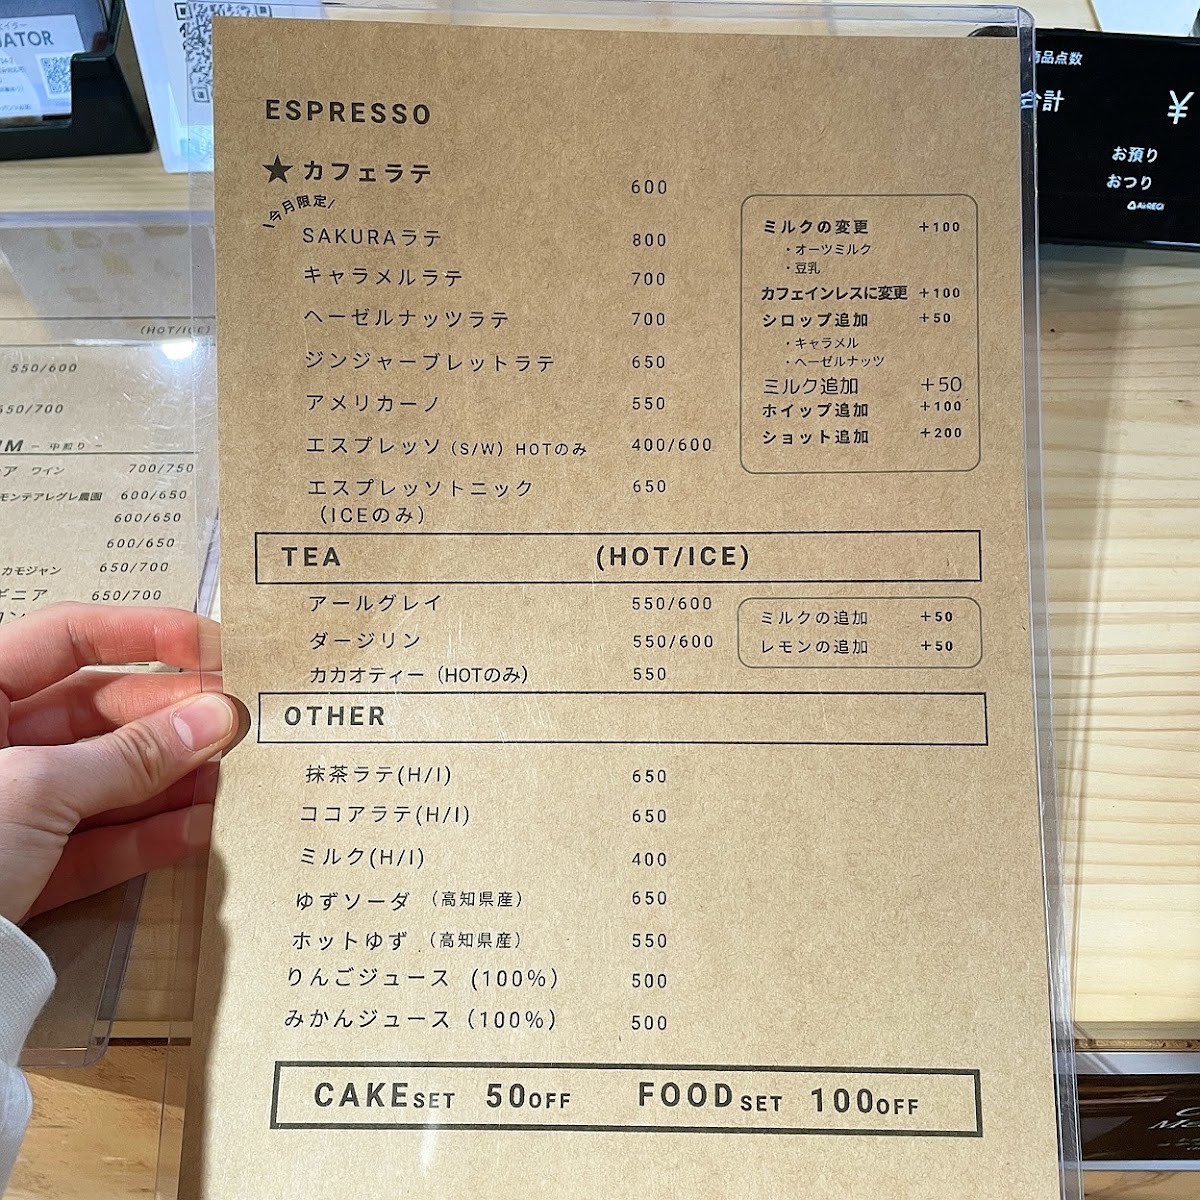 ATOR
ESPRESSO
★カフェラテ 600
\今月限定/
SAKURAラテ 800
キャラメルラテ 700
ヘーゼルナッツラテ 700
ジンジャーブレットラテ 650
アメリカーノ 550
エスプレッソ (S/W) HOTのみ 400/600
エスプレッソトニック 650
(ICEのみ)
ミルクの変更 +100
・オーツミルク
・豆乳
カフェインレスに変更 +100
シロップ追加 +50
・キャラメル
・ヘーゼルナッツ
ミルク追加 +50
ホイップ追加 +100
ショット追加 +200
TEA (HOT/ICE)
アールグレイ 550/600
ダージリン 550/600
カカオティー（HOTのみ） 550
ミルクの追加 +50
レモンの追加 +50
OTHER
抹茶ラテ(H/I) 650
ココアラテ(H/I) 650
ミルク(H/I) 400
ゆずソーダ （高知県産） 650
ホットゆず （高知県産） 550
りんごジュース (100%) 500
みかんジュース (100%) 500
CAKE SET 50OFF FOOD SET 100OFF
(HOT/ICE)
550/600
550/700
- 中煎り -
ワイン 700/750
モンテアレグレ農園 600/650
600/650
600/650
カモジャン 650/700
ギニア 650/700
商品点数
合計 ¥
お預り
おつり
AirREGI